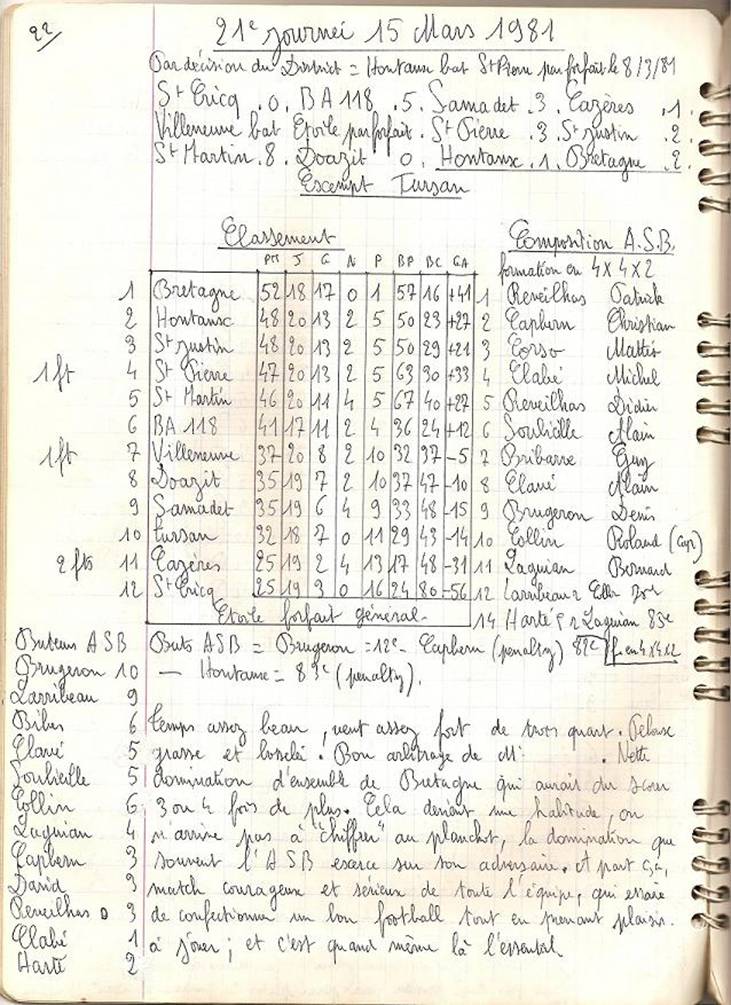 22
21e journée 15 Mars 1981
Par décision du District = Hontanx bat St Pierre par forfait le 8/3/81
St Cricq .0. BA 118 .5. Samadet .3. Cazères .1.
Villeneuve bat Etoile par forfait. St Pierre .3. St Justin .2.
St Martin .8. Doazit 0. Hontanx .1. Bretagne .2.
Exempt Tursan
Classement
Pts J G N P BP BC GA
1 Bretagne 52 18 17 0 1 57 16 +41
2 Hontanx 48 20 13 2 5 50 23 +27
3 St Justin 48 20 13 2 5 50 29 +21
1 ft 4 St Pierre 47 20 13 2 5 63 30 +33
5 St Martin 46 20 11 4 5 67 40 +27
6 BA 118 41 17 11 2 4 36 24 +12
1 ft 7 Villeneuve 37 20 8 2 10 32 37 -5
8 Doazit 35 19 7 2 10 37 47 -10
9 Samadet 35 19 6 4 9 33 48 -15
10 Tursan 32 18 7 0 11 29 43 -14
2 fts 11 Cazères 25 19 2 4 13 17 48 -31
12 St Cricq 25 19 3 0 16 24 80 -56
Etoile forfait général-
Composition A.S.B.
formation en 4 X 4 X 2
1 Reveilhas Patrick
2 Capbern Christian
3 Corso Mattéo
4 Clabé Michel
5 Reveilhas Didier
6 Soubielle Alain
7 Bribarre Guy
8 Clavé Alain
9 Brugeron Denis
10 Collin Roland (Cap)
11 Laguian Bernard
12 Larribeau r Collin 75e
14 Harté r Laguian 83e
Buts ASB = Brugeron = 12e - Capbern (penalty) 82e f. en 4x4x2
— Hontanx = 83e (penalty).
Buteurs ASB
Brugeron 10
Larribeau 9
Bibes 6
Clavé 5
Soubielle 5
Collin 6
Laguian 4
Capbern 3
David 3
Reveilhas D 3
Clabé 1
Harté 2
Temps assez beau, vent assez fort de trois quart. Pelouse
grasse et bosselée. Bon arbitrage de Mr . Nette
domination d'ensemble de Bretagne qui aurait du scorer
3 ou 4 fois de plus. Cela devient une habitude, on
n'arrive pas à "chiffrer" au planchot, la domination que
souvent l'ASB exerce sur son adversaire. A part ça,
match courageux et sérieux de toute l'équipe, qui essaie
de confectionner un bon football tout en prenant plaisir.
à jouer ; et c'est quand même là l'essentiel